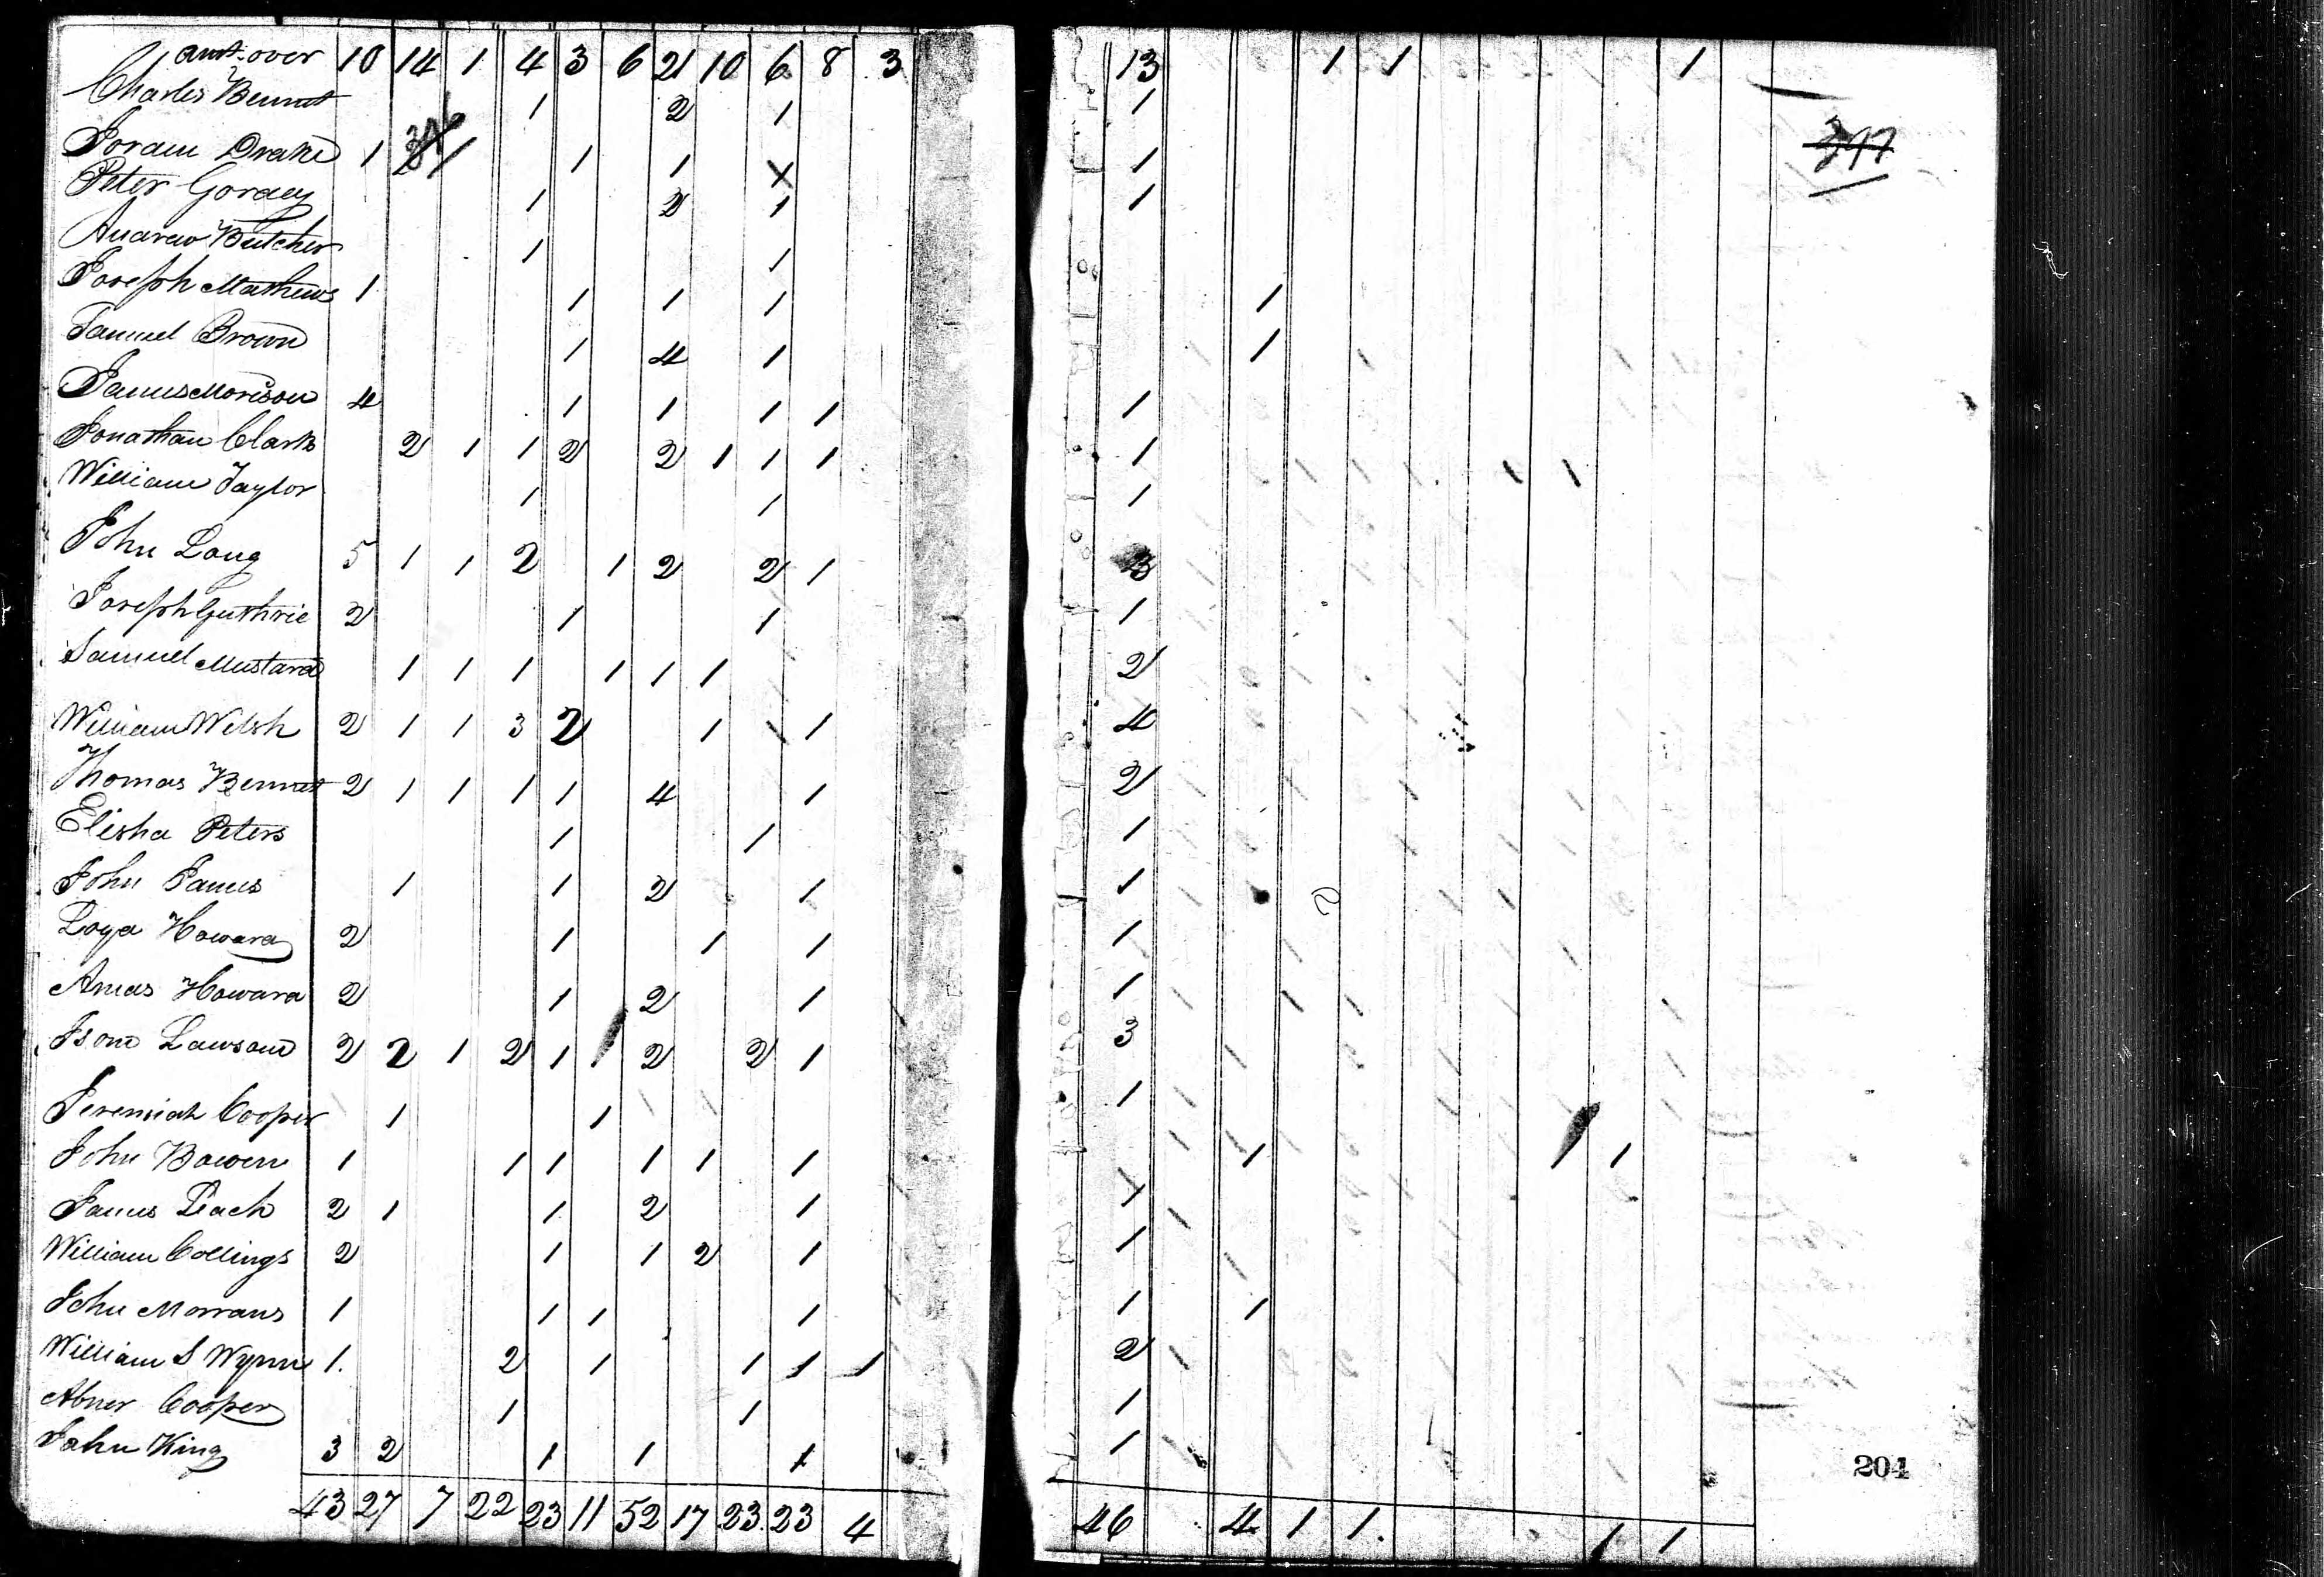 amt over 10 14 1 4 3 6 21 10 6 8 3 13 1 1 1
Charles Bennet 1 2 1 1
Joram Drake 1 1 1 1 1
Peter Gordey 1 2 1 1
Andrew Butcher 1 1
Joseph Mathews 1 1 1 1 1
Samuel Brown 1 4 1 1
James Morison 4 1 1 1 1 1
Jonathan Clark 2 1 1 2 2 1 1 1 1 1 1
William Taylor 1 1 1
John Long 5 1 1 2 1 2 2 1 3
Joseph Guthrie 2 1 1 1
Samuel Mustard 1 1 1 1 1 1 2
William Welsh 2 1 1 3 2 1 1 1 4
Thomas Bennet 2 1 1 1 1 4 1 2
Elisha Peters 1 1 1
John James 1 1 2 1 1
Loyd Howard 2 1 1 1 1
Amas Howard 2 1 2 1 1
Isom Lawson 2 2 1 2 1 2 2 1 3
Jeremiah Cooper 1 1 1
John Bowen 1 1 1 1 1 1 1 1
James Leach 2 1 1 2 1 1
William Collings 2 1 1 2 1 1
John Morrans 1 1 1 1 1 1
William S Wynn 1 2 1 1 1 1 2
Abner Cooper 1 1 1
John King 3 2 1 1 1 1
43 27 7 22 23 11 52 17 23 23 4 46 4 1 1 1 1
204